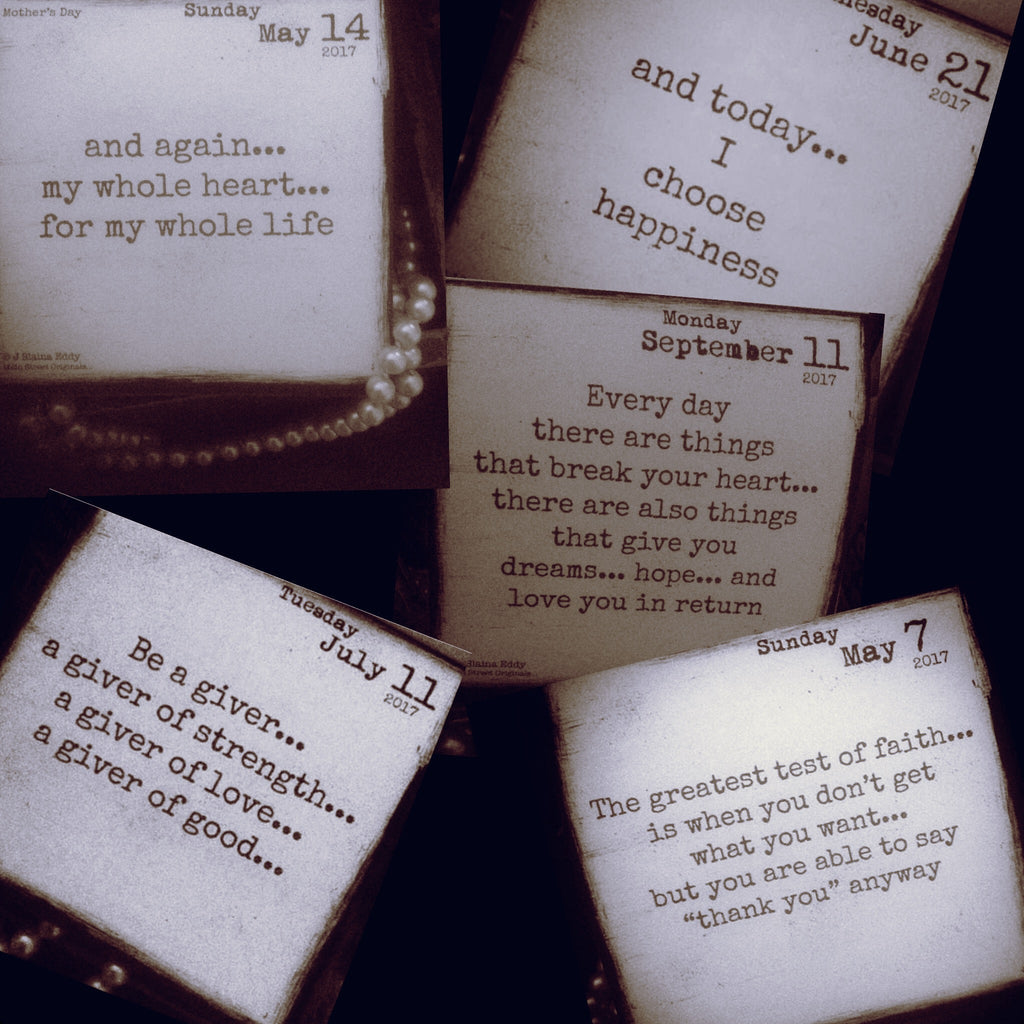 Mother's Day
Sunday
May 14
2017
and again...
my whole heart...
for my whole life
© J Blaina Eddy
Main Street Originals
nesday
June 21
2017
and today...
I
choose
happiness
Monday
September 11
2017
Every day
there are things
that break your heart...
there are also things
that give you
dreams... hope... and
love you in return
Blaina Eddy
Street Originals
Tuesday
July 11
2017
Be a giver...
a giver of strength...
a giver of love...
a giver of good...
Sunday
May 7
2017
The greatest test of faith...
is when you don't get
what you want...
but you are able to say
"thank you" anyway